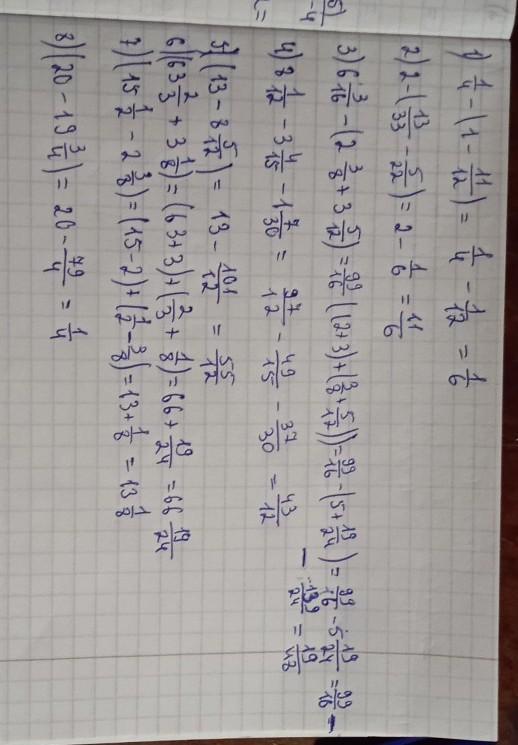 1) 1/4 - (1 - 11/12) = 1/4 - 1/12 = 1/6
2) 2 - (13/33 - 5/22) = 2 - 1/6 = 11/6
3) 6 3/16 - (2 3/8 + 3 5/12) = 99/16 ((2+3) + (3/8 + 5/12)) = 99/16 - (5 + 19/24) = 99/16 - 5 19/24 = 99/16 -
- 139/24 = 19/48
4) 8 1/12 - 3 4/15 - 1 7/30 = 97/12 - 49/15 - 37/30 = 43/12
5) (13 - 8 5/12) = 13 - 101/12 = 55/12
6) (63 2/3 + 3 1/8) = (63+3) + (2/3 + 1/8) = 66 + 19/24 = 66 19/24
7) (15 1/2 - 2 3/8) = (15-2) + (1/2 - 3/8) = 13 + 1/8 = 13 1/8
8) (20 - 19 3/4) = 20 - 79/4 = 1/4